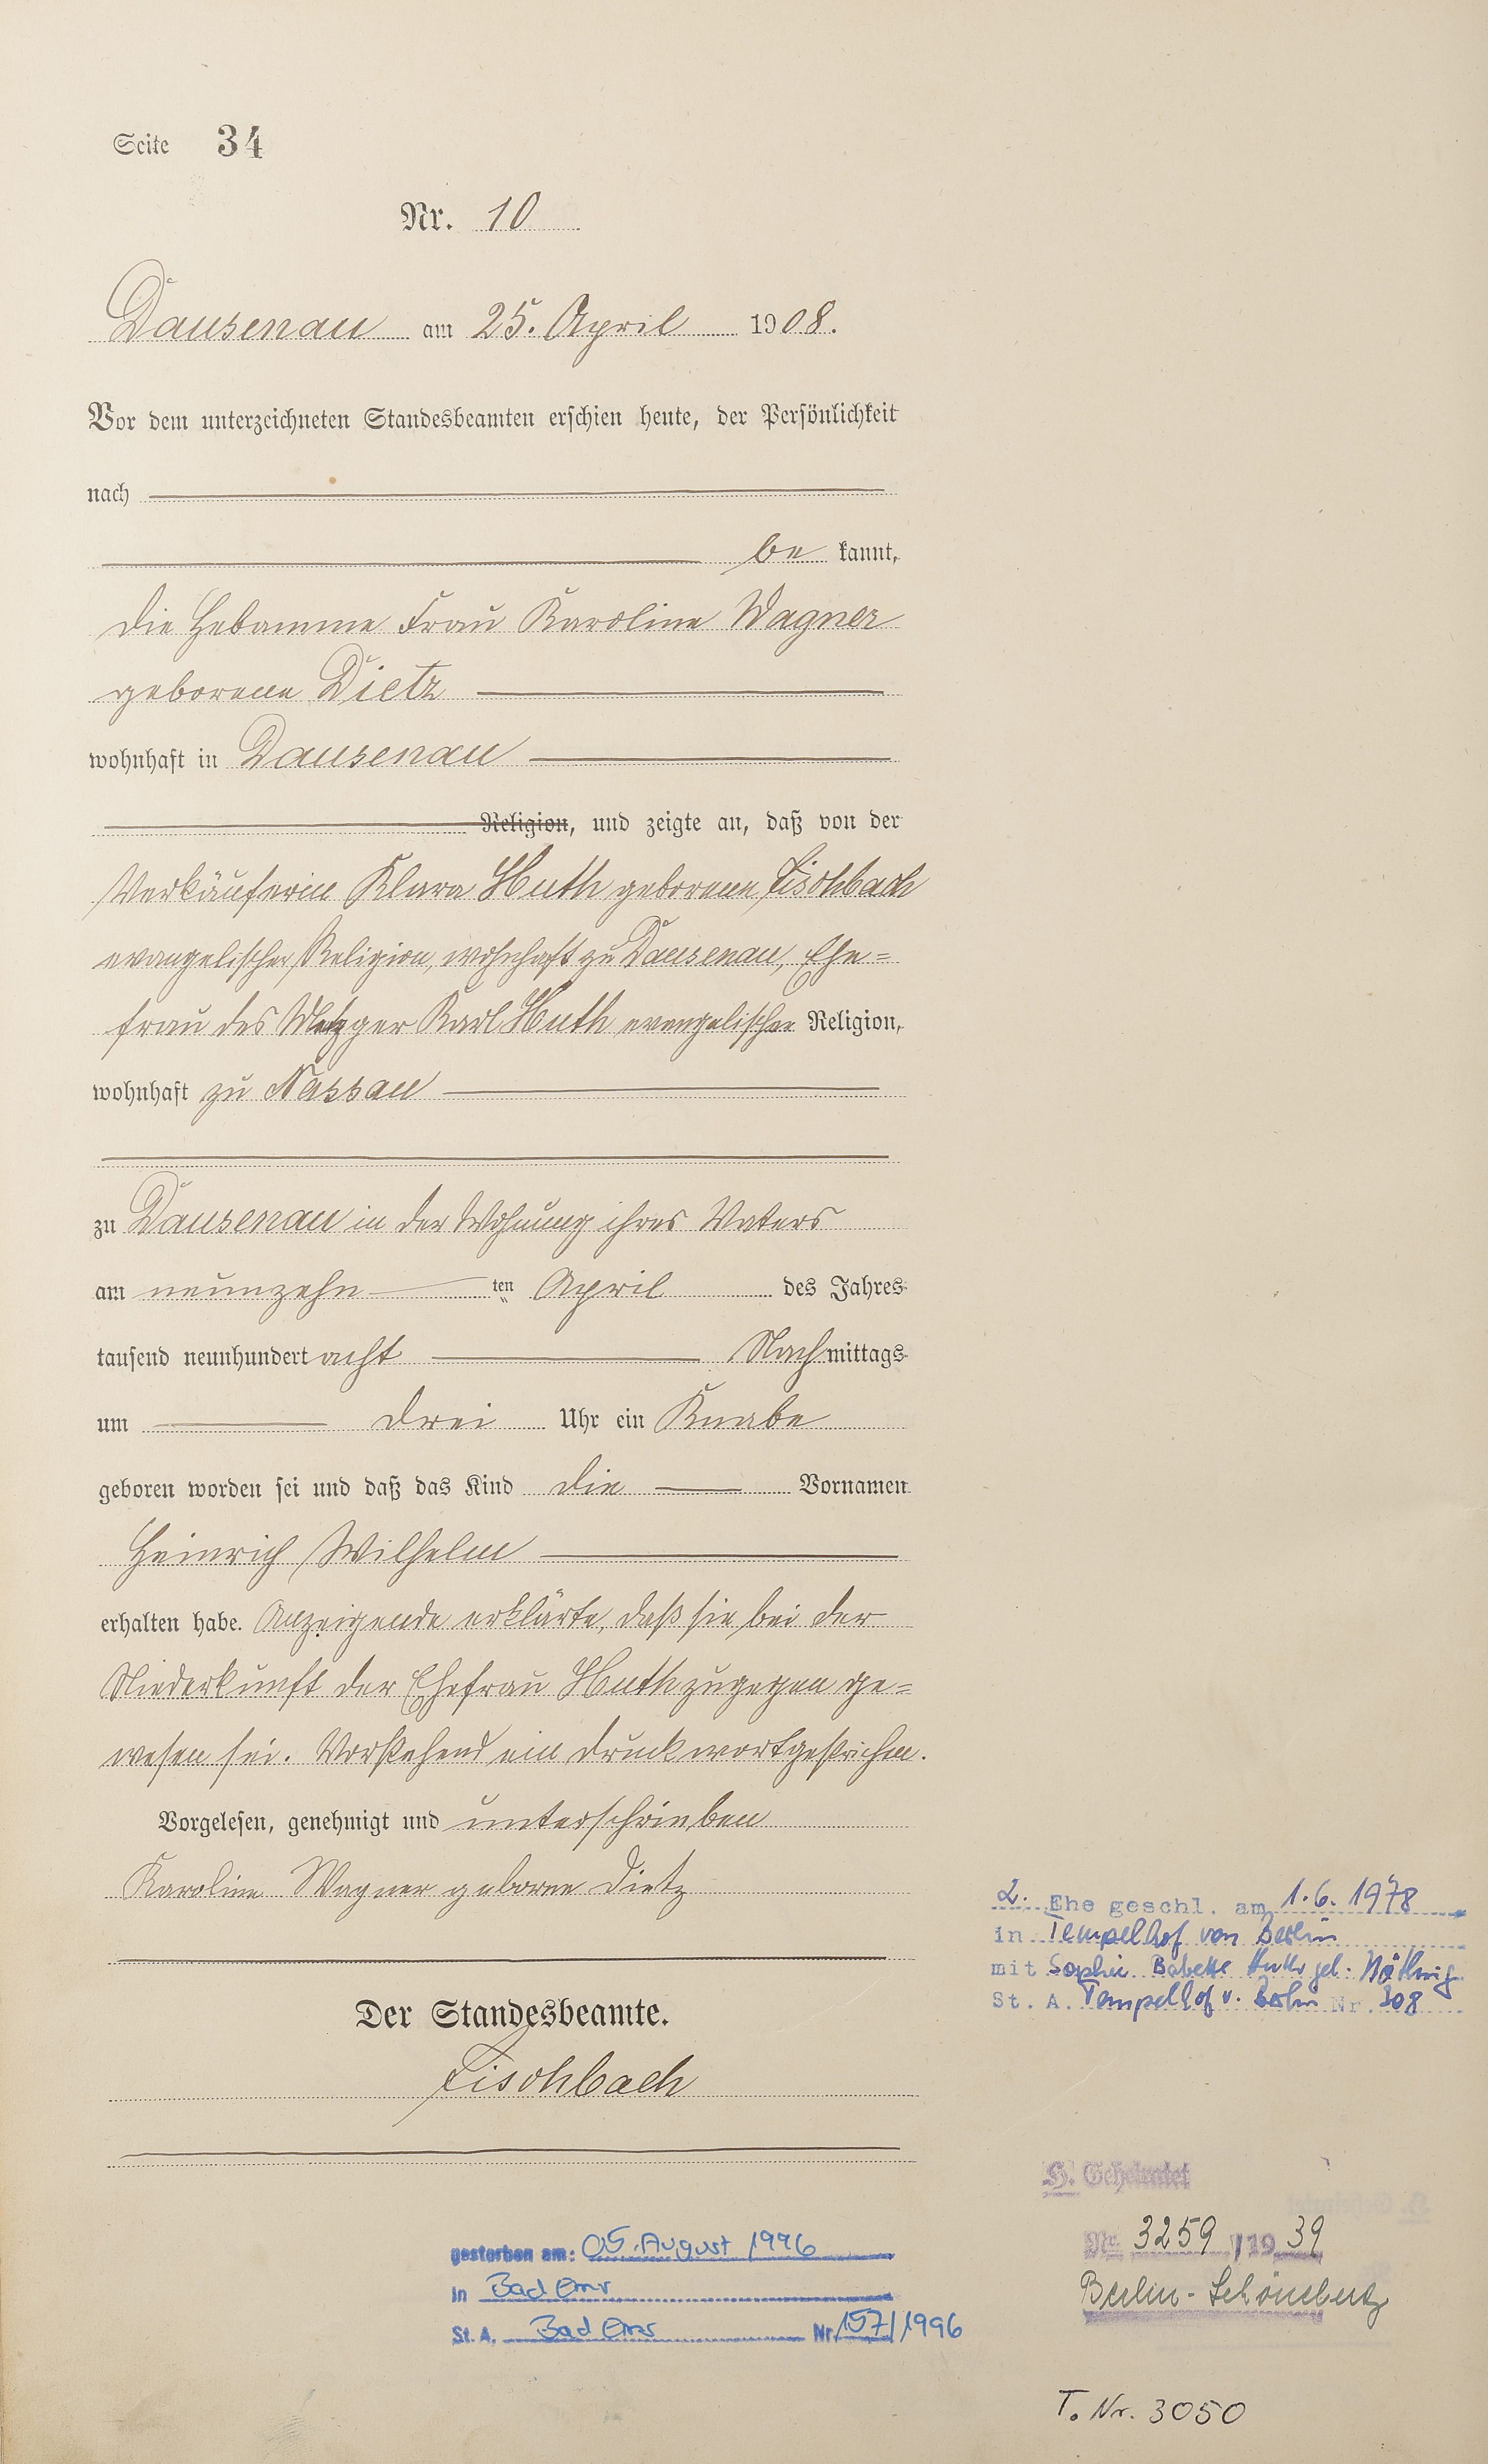 Seite 34
Nr. 10
Dausenau am 25. April 1908.
Vor dem unterzeichneten Standesbeamten erschien heute, der Persönlichkeit
nach
be kannt,
die Hebamme Frau Karoline Wagner
geborene Dietz
wohnhaft in Dausenau
Religion, und zeigte an, daß von der
Verkäuferin Klara Huth geborene Fischbach
evangelischer Religion, wohnhaft zu Dausenau, Ehe=
frau des Metzger Karl Huth evangelischer Religion,
wohnhaft zu Nassau
zu Dausenau in der Wohnung ihres Vaters
am neunzehn ten April des Jahres
tausend neunhundert acht Nachmittags
um drei Uhr ein Knabe
geboren worden sei und daß das Kind die Vornamen
Heinrich Wilhelm
erhalten habe. Anzeigende erklärte, daß sie bei der
Niederkunft der Ehefrau Huth zugegen ge=
wesen sei. Vorstehend ein Druckwort gestrichen.
Vorgelesen, genehmigt und unterschrieben
Karoline Wagner geborne Dietz
Der Standesbeamte.
Fischbach
2. Ehe geschl. am 1.6.1978
in Tempelhof von Berlin
mit Sophie Babette Huth geb.
St. A. Tempelhof v. Berlin Nr. 308
H. Geheiratet
Nr. 3259 /19 39
Berlin-Schöneberg
gestorben am: 05. August 1996
in Bad Ems
St. A. Bad Ems Nr. 157/1996
T. Nr. 3050